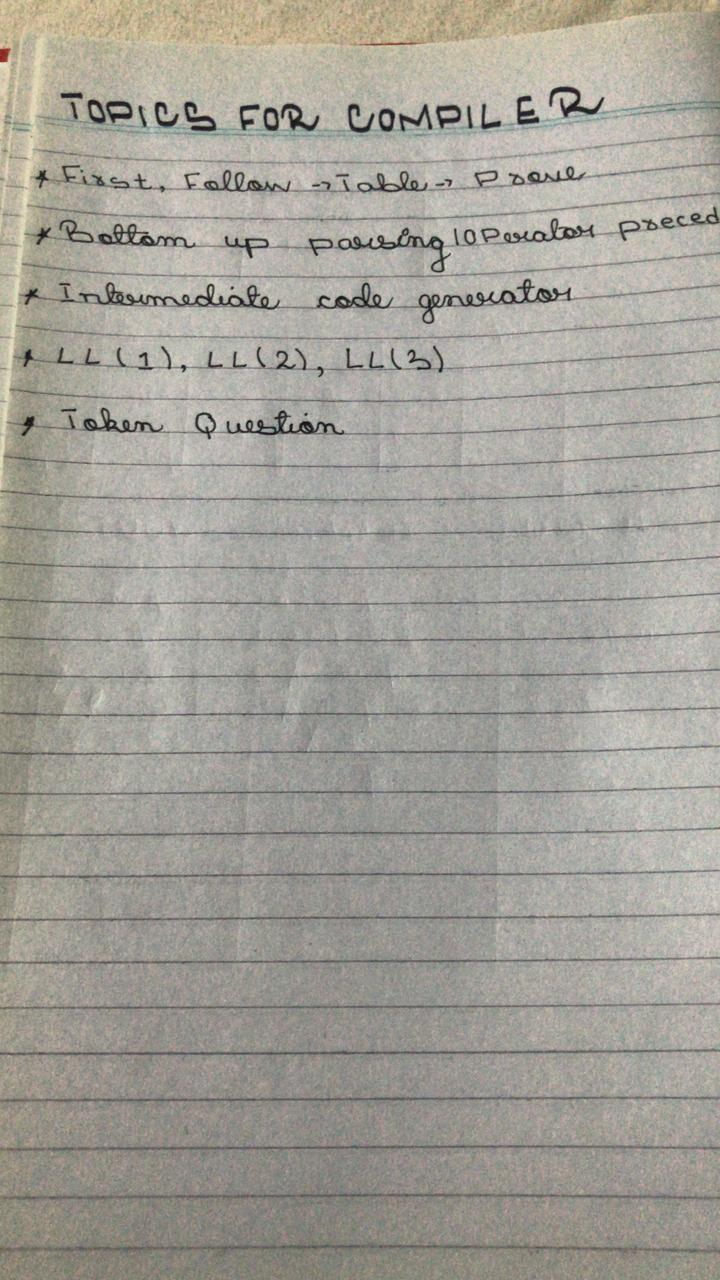 TOPICS FOR COMPILER
* First, Follow → Table → Prove
* Bottom up parsing | Operator preced
* Intermediate code generator
* LL(1), LL(2), LL(3)
* Token Question